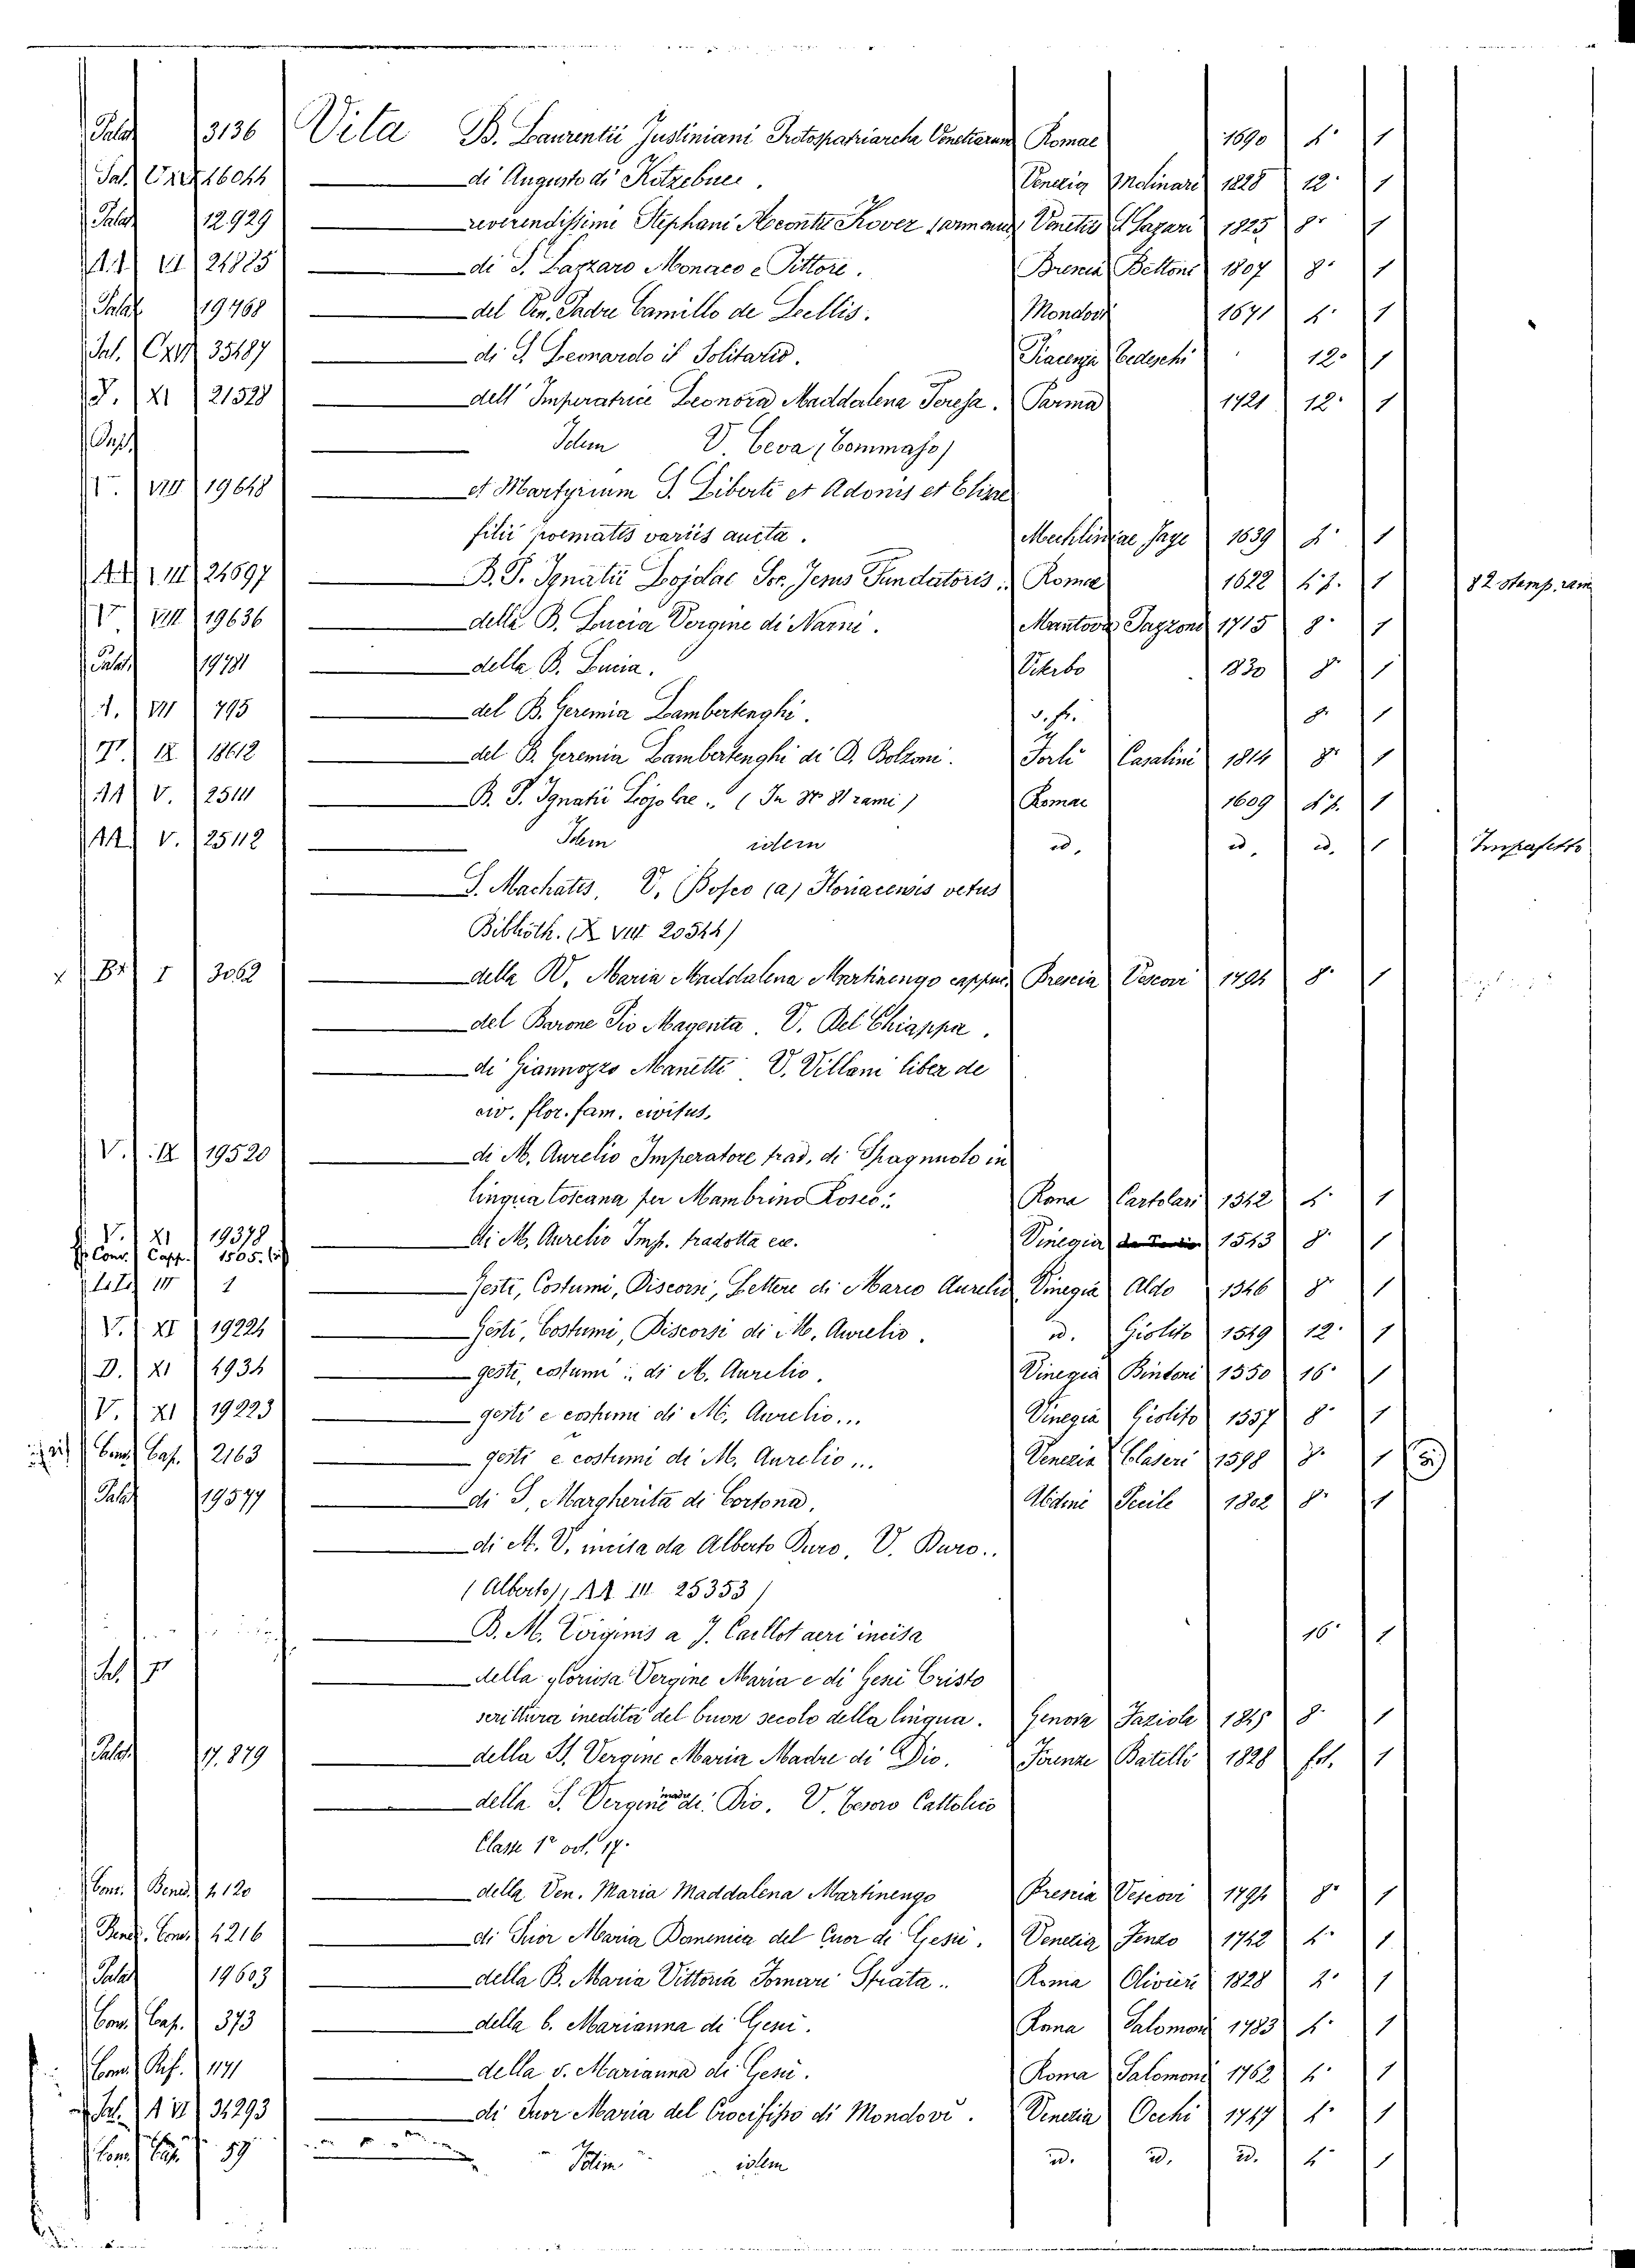 Palat 3136 Vita B. Laurentii Justiniani Protopatriarcha Venetiarum Romae 1690 4° 1
Sal. 16044 — di Augusto di Kotzebue. Venezia Molinari 1828 12° 1
Palat 12929 — reverendissimi Stephani Aconti Kover Venetiis S Lazari 1825 8° 1
A.A VI 24885 — di S. Lazzaro Monaco e Pittore. Brescia Bettoni 1807 8° 1
Palat 19468 — del Ven. Padre Camillo de Lellis. Mondovi 1671 4° 1
Sal. 35487 — di S. Leonardo il Solitario. Piacenza Tedeschi 12° 1
S. XI 21528 — dell' Imperatrice Leonora Maddalena Teresa. Parma 1721 12° 1
— Idem V. Ceva (Tommaso)
VIII 19648 — et Martyrium S. Liberti et Adonis et Elisae
filii poematis variis aucta. Mechliniae Jaye 1639 1
A.A III 24697 — B. P. Ignatii Lojolae Soc. Jesus Fundatoris. Romae 1622 4° p. 1 82 stamp. ram
V VIII 19636 — della B. Lucia Vergine di Narni. Mantova Pazzoni 1715 8° 1
Palat. 19481 — della B. Lucia. Viterbo 1830 8° 1
A. VIII 795 — del B. Geremia Lambertenghi. s. n. 8° 1
IX 18612 — del B. Geremia Lambertenghi di D. Bolzoni. Forli Casalini 1814 8° 1
AA V. 25111 — B. P. Ignatii Lojolae .. (In rami) Romae 1609 4° p. 1
AA V. 25112 — Idem idem id. id. id. 1 Imperfetto
— S. Machatis, V. Bosco (a) Floriacensis vetus
Biblioth. (X VIII 20544)
x B* I 3062 — della V. Maria Maddalena Martinengo cappuc. Brescia Vescovi 1794 8° 1
— del Barone Pio Magenta. V. Del Chiappa.
— di Giannozzo Manetti. V. Villani liber de
civ. flor. fam. civibus.
V. IX 19520 — di M. Aurelio Imperatore trad. di Spagnuolo in
lingua toscana per Mambrino Roseo. Roma Cartolari 1542 4° 1
V. XI 19378 — di M. Aurelio Imp. tradotta ec. Vinegia 1543 8° 1
Conv. Capp. 1505. bis
III 1 — Gesti, Costumi, Discorsi, Lettere di Marco Aurelio Vinegia Aldo 1546 8° 1
V. XI 19224 — Gesti, Costumi, Discorsi di M. Aurelio. id. Giolito 1549 12° 1
D. XI 4934 — gesti, costumi .. di M. Aurelio. Vinegia Bintoni 1550 16° 1
V. XI 19223 — gesti e costumi di M. Aurelio... Vinegia Giolito 1557 8° 1
Conv. Cap. 2163 — gesti e costumi di M. Aurelio... Venezia Claseri 1598 8° 1
Palat 19577 — di S. Margherita di Cortona. Udine Pecile 1802 8° 1
— di M. V. incisa da Alberto Duro. V. Duro..
(Alberto), AA III 25353)
— B. M. Virginis a J. Caillot aeri incisa 16° 1
Sal. — della gloriosa Vergine Maria e di Gesù Cristo
scrittura inedita del buon secolo della lingua. Genova Faziola 1845 8° 1
Palat. 17.879 — della SS. Vergine Maria Madre di Dio. Firenze Batelli 1828 fol. 1
— della S. Vergine madre di Dio. V. Tesoro Cattolico
Classe 1ª vol. 17.
Conv. Bened. 4120 — della Ven. Maria Maddalena Martinengo Brescia Vescovi 1794 8° 1
Bened. Conv. 4216 — di Suor Maria Domenica del Cuor di Gesù. Venezia Fenzo 1742 4° 1
Palat 19603 — della B. Maria Vittoria Fornari Strata.. Roma Olivieri 1828 4° 1
Conv. Cap. 373 — della b. Marianna di Gesù. Roma Salomoni 1783 4° 1
Conv. Ref. 1171 — della v. Marianna di Gesù. Roma Salomoni 1762 4° 1
Sal. 34293 — di Suor Maria del Crocifisso di Mondovi. Venezia Occhi 1747 4° 1
Conv. Cap. 59 — Idem idem id. id. id. 4° 1